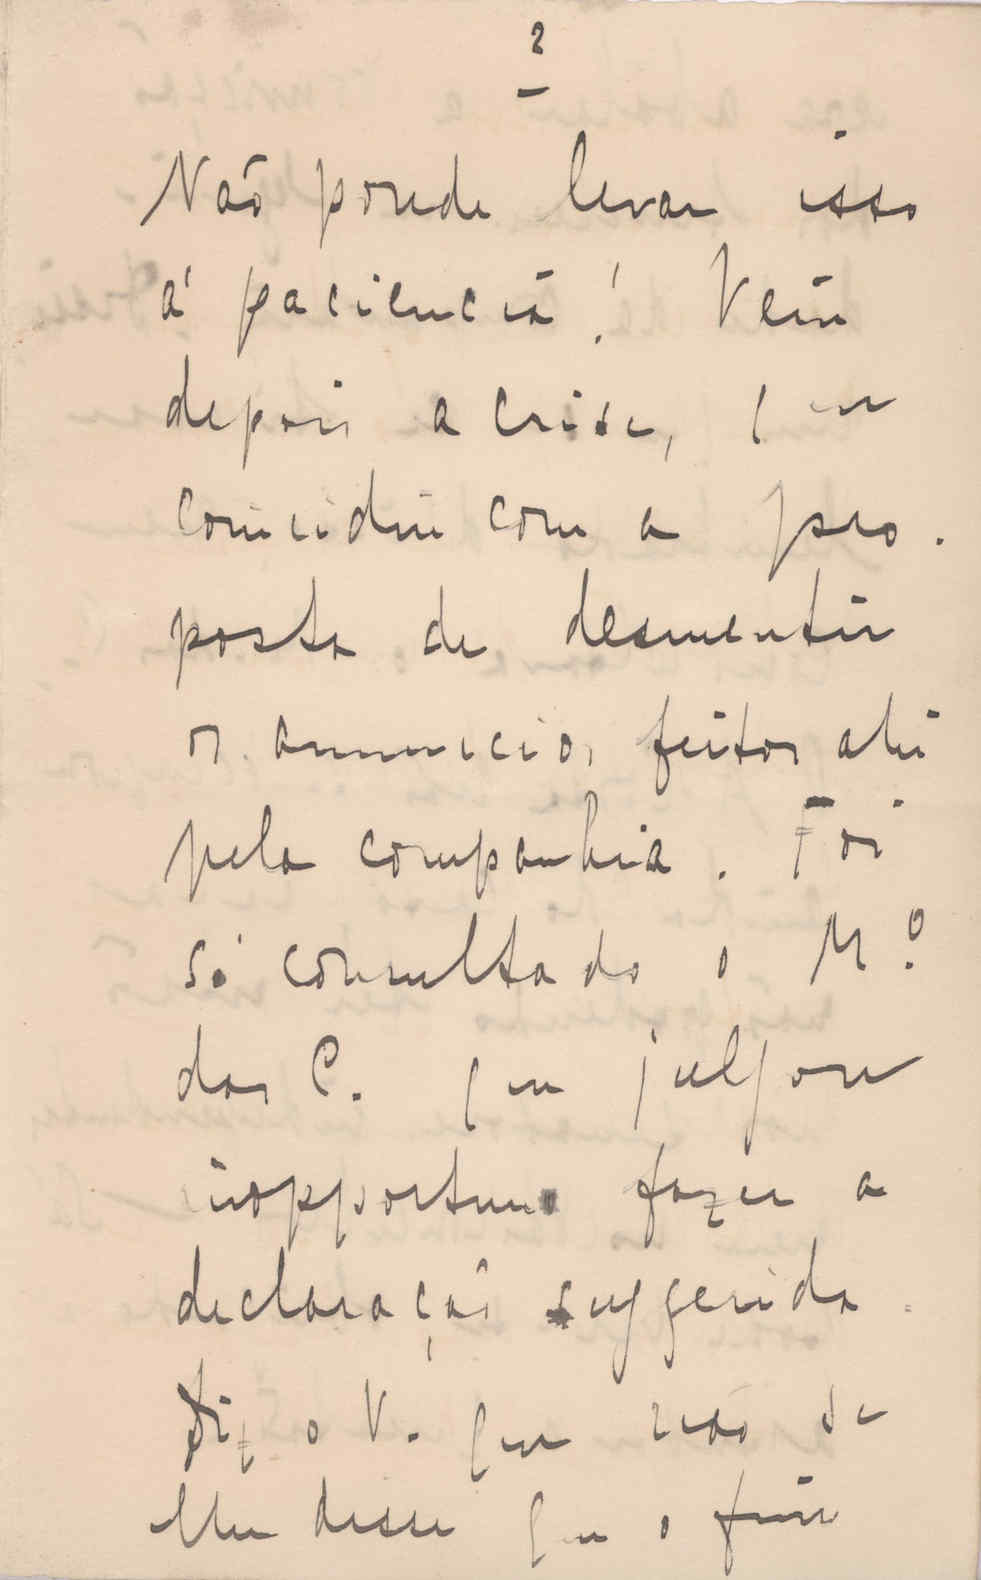 2
Não poude levar isso
á paciencia! Vem
depois a crise, que
coincidiu com a pro-
posta de desmentir
os annuncios feitos ahi
pela companhia. Foi
só consultado o M.º
dos C. que julgou
inopportuno fazer a
declaração suggerida.
Diz o V. que não se
lhe disse que o fim